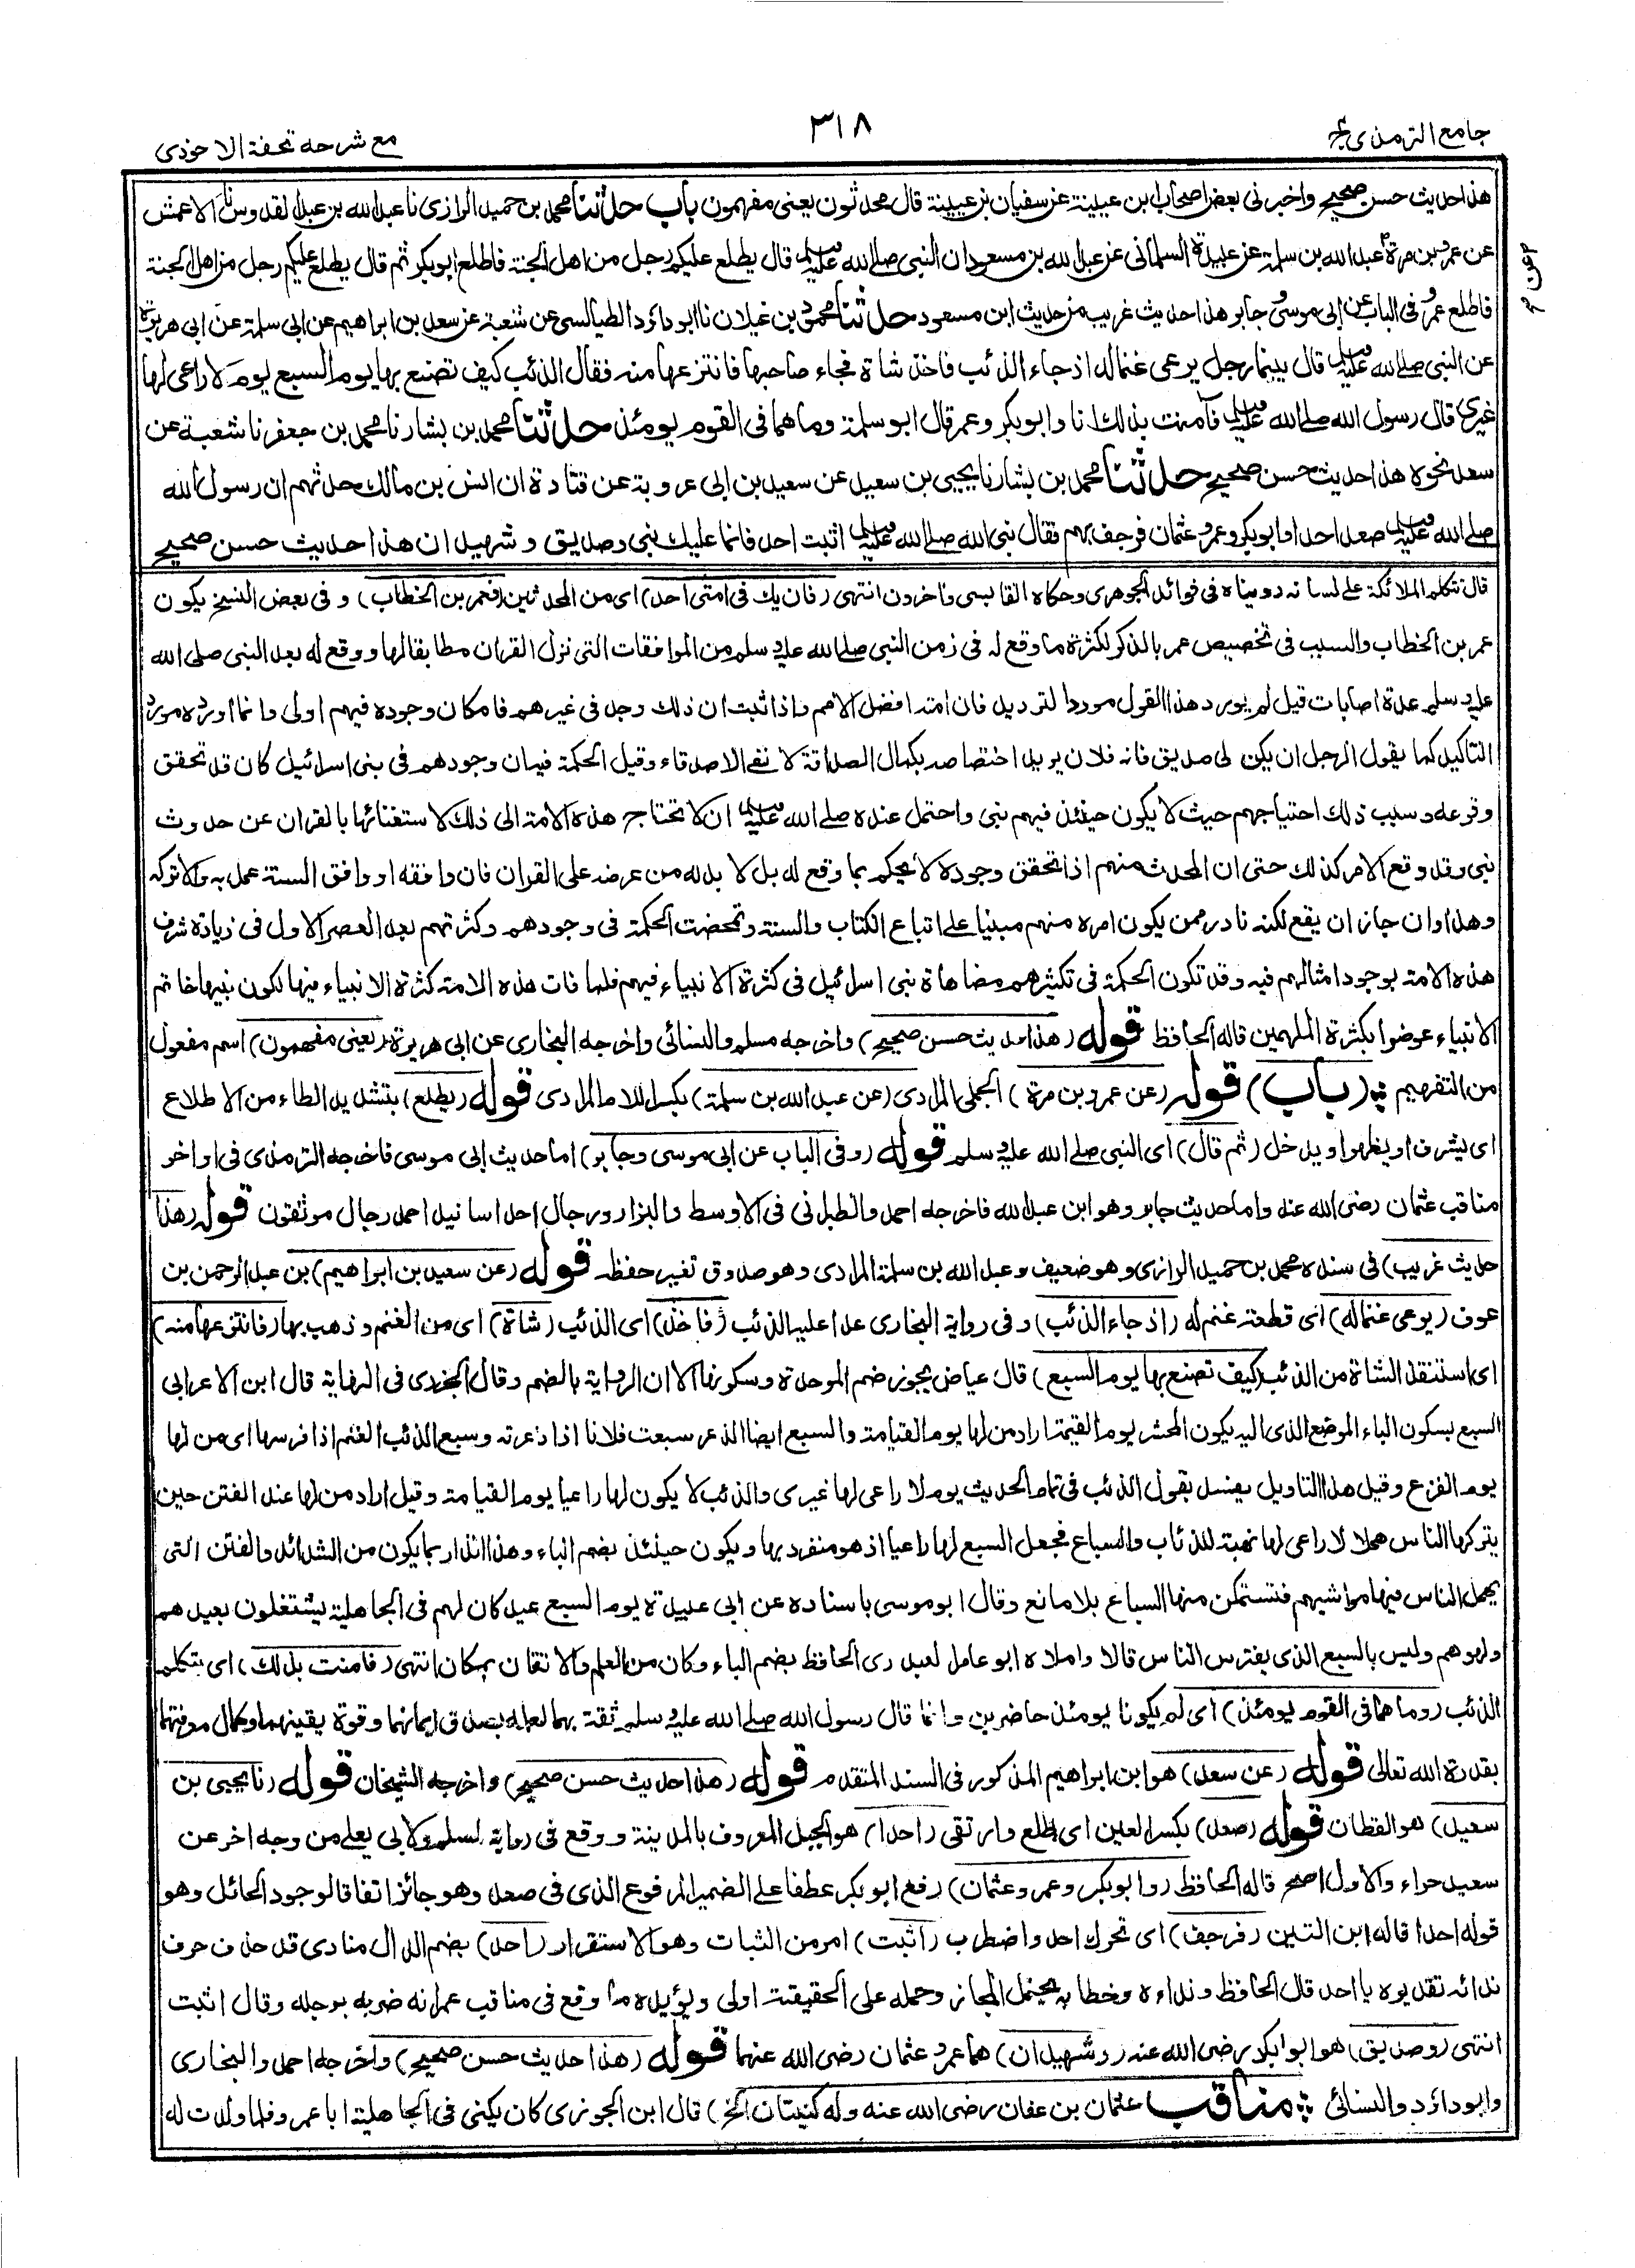 جامع الترمذي ج ٤
٣١٨
مع شرحه تحفة الاحوذى
هذا حديث حسن صحيح واخبرنى بعض اصحاب ابن عيينة عن سفيان بن عيينة قال محدثون يعنى مفهمون باب حدثنا محمد بن حميد الرازى نا عبد الله بن عبد القدوس نا الاعمش
عن عمرو بن مرة عن عبد الله بن سلمة عن عبيدة السلمانى عن عبد الله بن مسعود ان النبى صلى الله عليه وسلم قال يطلع عليكم رجل من اهل الجنة فاطلع ابو بكر ثم قال يطلع عليكم رجل من اهل الجنة
فاطلع عمر وفى الباب عن ابى موسى وجابر هذا حديث غريب من حديث ابن مسعود حدثنا محمود بن غيلان نا ابو داؤد الطيالسى عن شعبة عن سعد بن ابراهيم عن ابى سلمة عن ابى هريرة
عن النبى صلى الله عليه وسلم قال بينما رجل يرعى غنما له اذ جاء الذئب فاخذ شاة فجاء صاحبها فانتزعها منه فقال الذئب كيف تصنع بها يوم السبع يوم لا راعى لها
غيرى قال رسول الله صلى الله عليه وسلم فآمنت بذلك انا وابو بكر وعمر قال ابو سلمة وما هما فى القوم يومئذ حدثنا محمد بن بشار نا محمد بن جعفر نا شعبة عن
سعد نحوه هذا حديث حسن صحيح حدثنا محمد بن بشار نا يحيى بن سعيد عن سعيد بن ابى عروبة عن قتادة ان انس بن مالك حدثهم ان رسول الله
صلى الله عليه وسلم صعد احدا وابو بكر وعمر وعثمان فرجف بهم فقال نبى الله صلى الله عليه وسلم اثبت احد فانما عليك نبى وصديق وشهيدان هذا حديث حسن صحيح
قال تتكلم الملائكة على لسانه رويناه فى فوائد الجوهرى وحكاه القابسى واخرون انتهى (فان يك فى امتى احد) اى من المحدثين (فعمر بن الخطاب) وفى بعض النسخ يكون
عمر بن الخطاب والسبب فى تخصيص عمر بالذكر لكثرة ما وقع له فى زمن النبى صلى الله عليه وسلم من الموافقات التى نزل القران مطابقا لها ووقع له بعد النبى صلى الله
عليه وسلم عدة اصابات قيل لم يورد هذا القول مورد التردد فان امته افضل الامم واذا ثبت ان ذلك وجد فى غيرهم فامكان وجوده فيهم اولى وانما اورده مورد
التاكيد كما يقول الرجل ان يكن لى صديق فانه فلان يريد اختصاصه بكمال الصداقة لا نفى الاصدقاء وقيل الحكمة فيه ان وجودهم فى بنى اسرائيل كان قد تحقق
وقوعه وسبب ذلك احتياجهم حيث لا يكون حينئذ فيهم نبى واحتمل عنده صلى الله عليه وسلم ان لا تحتاج هذه الامة الى ذلك لاستغنائها بالقران عن حدوث
نبى وقد وقع الامر كذلك حتى ان المحدث منهم اذا تحقق وجوده لا يحكم بما وقع له بل لا بد له من عرضه على القران فان وافقه او وافق السنة عمل به والا تركه
وهذا وان جاز ان يقع لكنه نادر ممن يكون امره منهم مبنيا على اتباع الكتاب والسنة وتمحضت الحكمة فى وجودهم وكثرتهم بعد العصر الاول فى زيادة شرف
هذه الامة بوجود امثالهم فيه وقد تكون الحكمة فى تكثيرهم مضاهاة بنى اسرائيل فى كثرة الانبياء فيهم فلما فات هذه الامة كثرة الانبياء فيها لكون نبيها خاتم
الانبياء عوضوا بكثرة الملهمين قاله الحافظ قوله (هذا حديث حسن صحيح) واخرجه مسلم والنسائى واخرجه البخارى عن ابى هريرة (يعنى مفهمون) اسم مفعول
من التفهيم (باب) قوله (عن عمرو بن مرة) الجملى المرادى (عن عبد الله بن سلمة) بكسر اللام المرادى قوله (يطلع) بتشديد الطاء من الاطلاع
اى يشرف او يظهر او يدخل (ثم قال) اى النبى صلى الله عليه وسلم قوله (وفى الباب عن ابى موسى وجابر) اما حديث ابى موسى فاخرجه الترمذى فى اواخر
مناقب عثمان رضى الله عنه واما حديث جابر وهو ابن عبد الله فاخرجه احمد والطبرانى فى الاوسط والبزار ورجال احد اسانيد احمد رجال موثقون قوله (هذا
حديث غريب) فى سنده محمد بن حميد الرازى وهو ضعيف وعبد الله بن سلمة المرادى وهو صدوق تغير حفظه قوله (عن سعيد بن ابراهيم) بن عبد الرحمن بن
عوف (يرعى غنما له) اى قطعة غنم له (اذ جاء الذئب) وفى رواية البخارى عدا عليه الذئب (فاخذ) اى الذئب (شاة) اى من الغنم وذهب بها (فانتزعها منه)
اى استنقذ الشاة من الذئب (كيف تصنع بها يوم السبع) قال عياض يجوز ضم الموحدة وسكونها الا ان الرواية بالضم وقال الجزرى فى النهاية قال ابن الاعرابى
السبع بسكون الباء الموضع الذى اليه يكون المحشر يوم القيمة اراد من لها يوم القيامة والسبع ايضا الذعر سبعت فلانا اذا ذعرته وسبع الذئب الغنم اذا فرسها اى من لها
يوم الفزع وقيل هذا التاويل يفسد بقول الذئب فى تمام الحديث يوم لا راعى لها غيرى والذئب لا يكون لها راعيا يوم القيامة وقيل اراد من لها عند الفتن حين
يتركها الناس هملا لا راعى لها نهبة للذئاب والسباع فجعل السبع لها راعيا اذ هو منفرد بها ويكون حينئذ بضم الباء وهذا انذار بما يكون من الشدائد والفتن التى
يهمل الناس فيها مواشيهم فتستمكن منها السباع بلا مانع وقال ابو موسى باسناده عن ابى عبيدة يوم السبع عيد كان لهم فى الجاهلية يشتغلون بعيدهم
ولهوهم وليس بالسبع الذى يفترس الناس قال واملاه ابو عامر العبدرى الحافظ بضم الباء وكان من العلم والاتقان بمكان انتهى (فامنت بذلك) اى بتكلم
الذئب (وما هما فى القوم يومئذ) اى لم يكونا يومئذ حاضرين وانما قال رسول الله صلى الله عليه وسلم ثقة بهما لعلمه بصدق ايمانهما وقوة يقينهما وكمال معرفتهما
بقدرة الله تعالى قوله (عن سعد) هو ابن ابراهيم المذكور فى السند المتقدم قوله (هذا حديث حسن صحيح) واخرجه الشيخان قوله (نا يحيى بن
سعيد) هو القطان قوله (صعد) بكسر العين اى طلع وارتقى (احدا) هو الجبل المعروف بالمدينة ووقع فى رواية لمسلم ولابى يعلى من وجه اخر عن
سعيد حراء والاول اصح قاله الحافظ (وابو بكر وعمر وعثمان) رفع ابو بكر عطفا على الضمير المرفوع الذى فى صعد وهو جائز اتفاقا لوجود الحائل وهو
قوله احدا قاله ابن التين (فرجف) اى تحرك احد واضطرب (اثبت) امر من الثبات وهو الاستقرار (احد) بضم الدال منادى قد حذف حرف
ندائه تقديره يا احد قال الحافظ ونداءه وخطابه يحتمل المجاز وحمله على الحقيقة اولى ويؤيده ما وقع فى مناقب عمر انه ضربه برجله وقال اثبت
انتهى (وصديق) هو ابو بكر رضى الله عنه (وشهيدان) هما عمر وعثمان رضى الله عنهما قوله (هذا حديث حسن صحيح) واخرجه احمد والبخارى
وابو داؤد والنسائى مناقب عثمان بن عفان رضى الله عنه وله كنيتان الخ) قال ابن الجوزى كان يكنى فى الجاهلية ابا عمرو فلما ولدت له